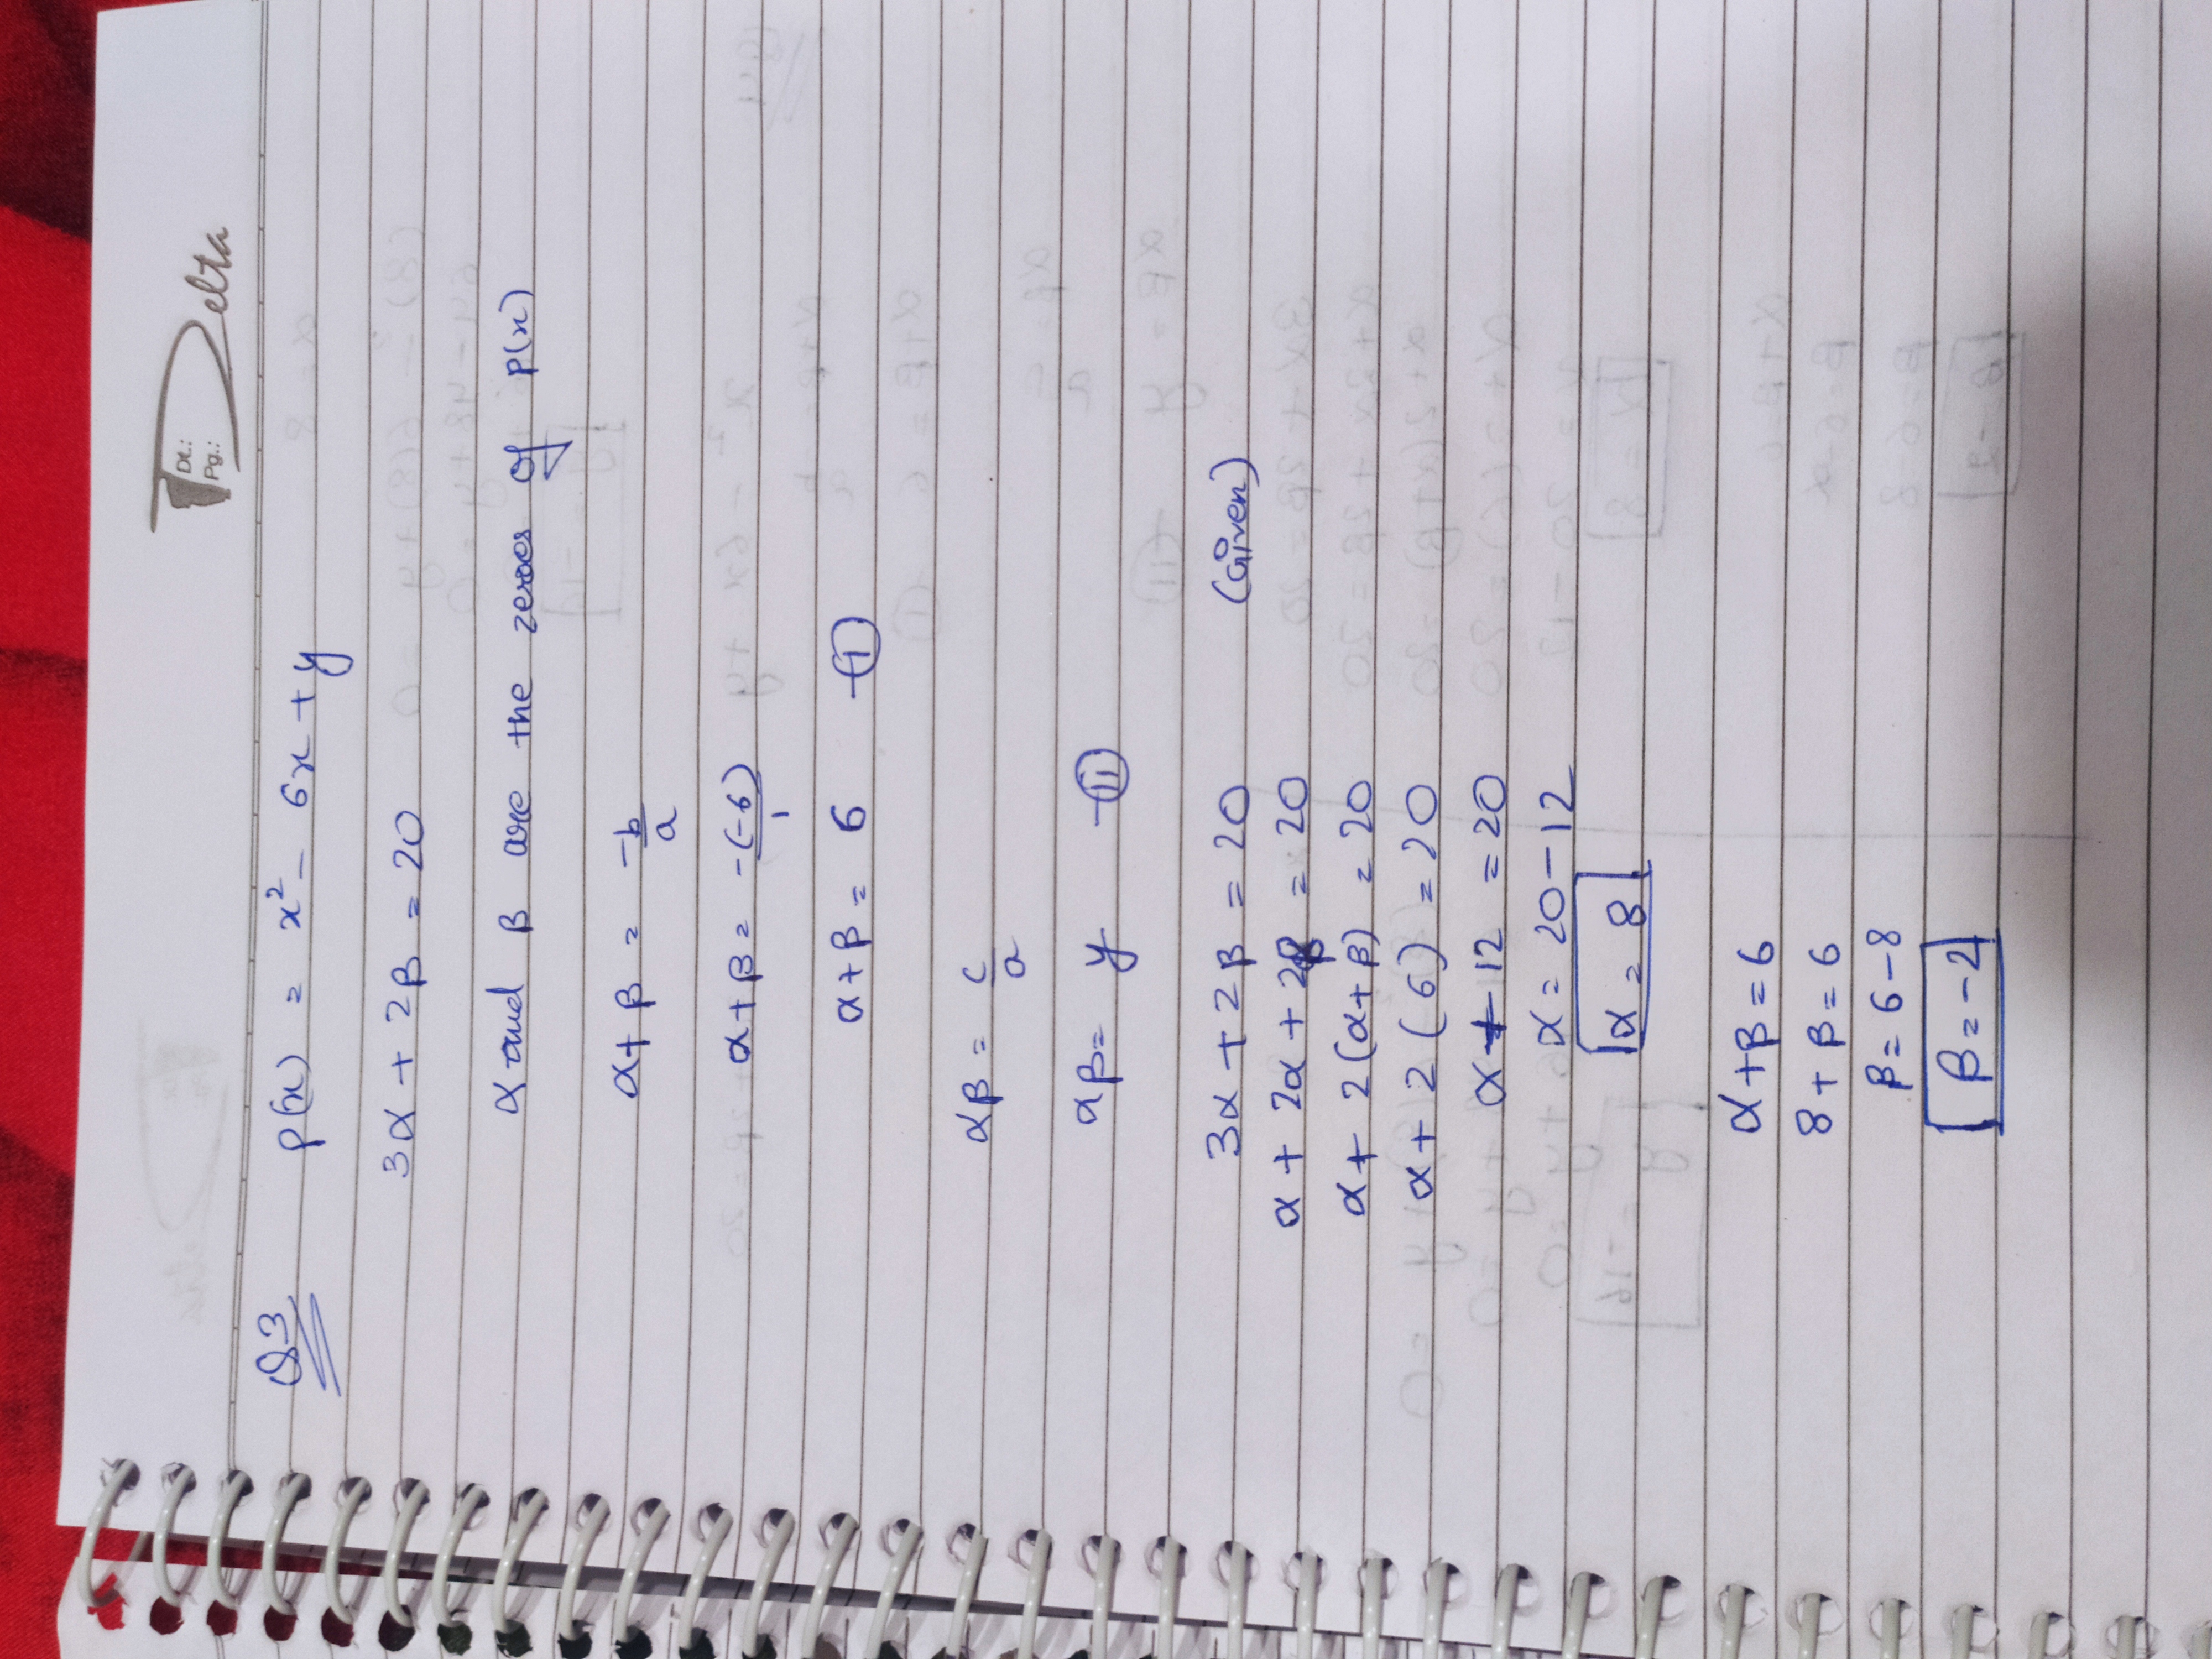 Dt.:
Pg.:
Delta
Q3 p(x) = x² - 6x + y
3α + 2β = 20
α and β are the zeroes of p(x)
α + β = -b/a
α + β = -(-6)/1
α + β = 6 -(i)
αβ = c/a
αβ = y -(ii)
3α + 2β = 20 (Given)
α + 2α + 2β = 20
α + 2(α + β) = 20
α + 2(6) = 20
α + 12 = 20
α = 20 - 12
α = 8
α + β = 6
8 + β = 6
β = 6 - 8
β = -2